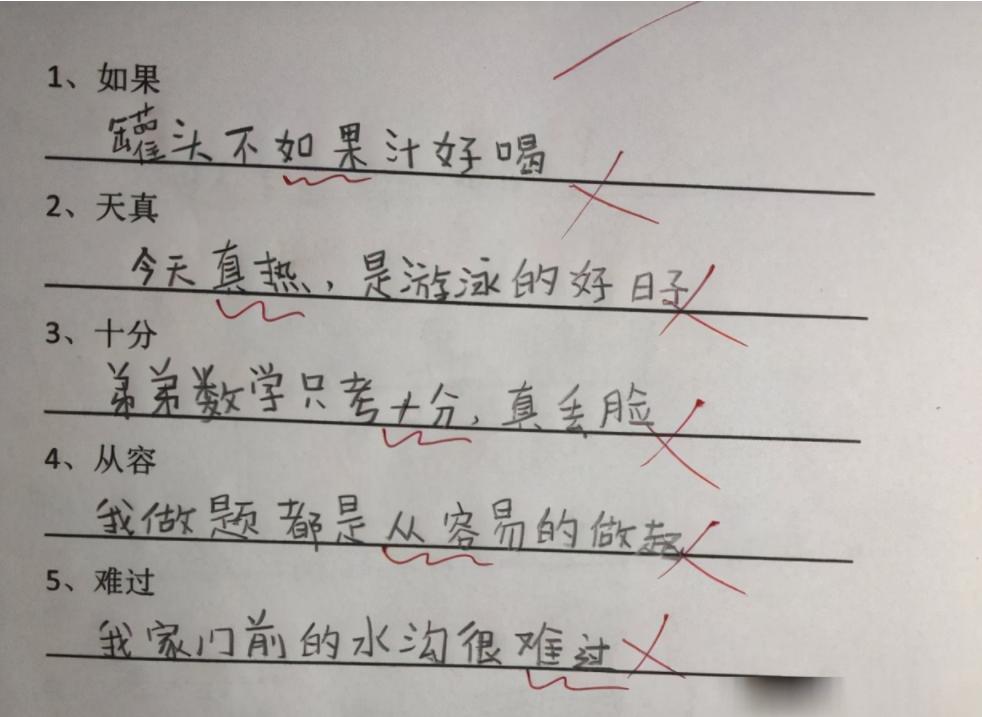 1、如果
罐头不如果汁好喝
2、天真
今天真热,是游泳的好日子
3、十分
弟弟数学只考十分,真丢脸
4、从容
我做题都是从容易的做起
5、难过
我家门前的水沟很难过